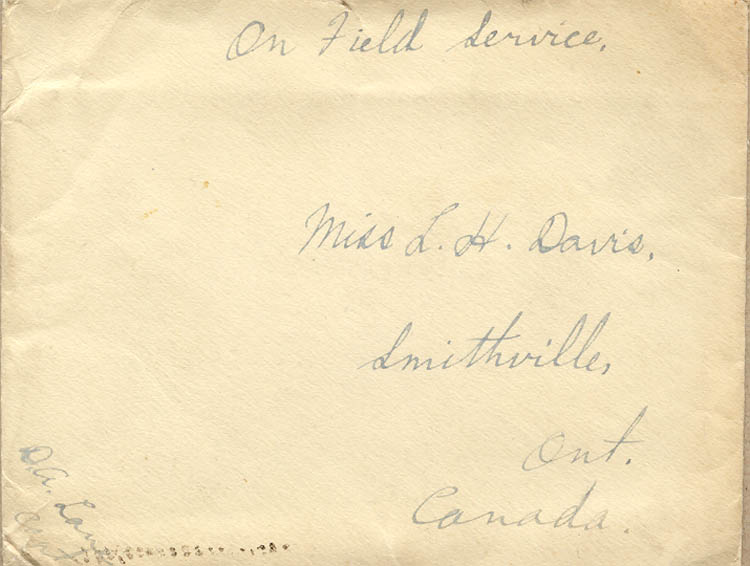 On Field Service.
Miss L. H. Davis,
Smithville,
Ont.
Canada.
D.A.